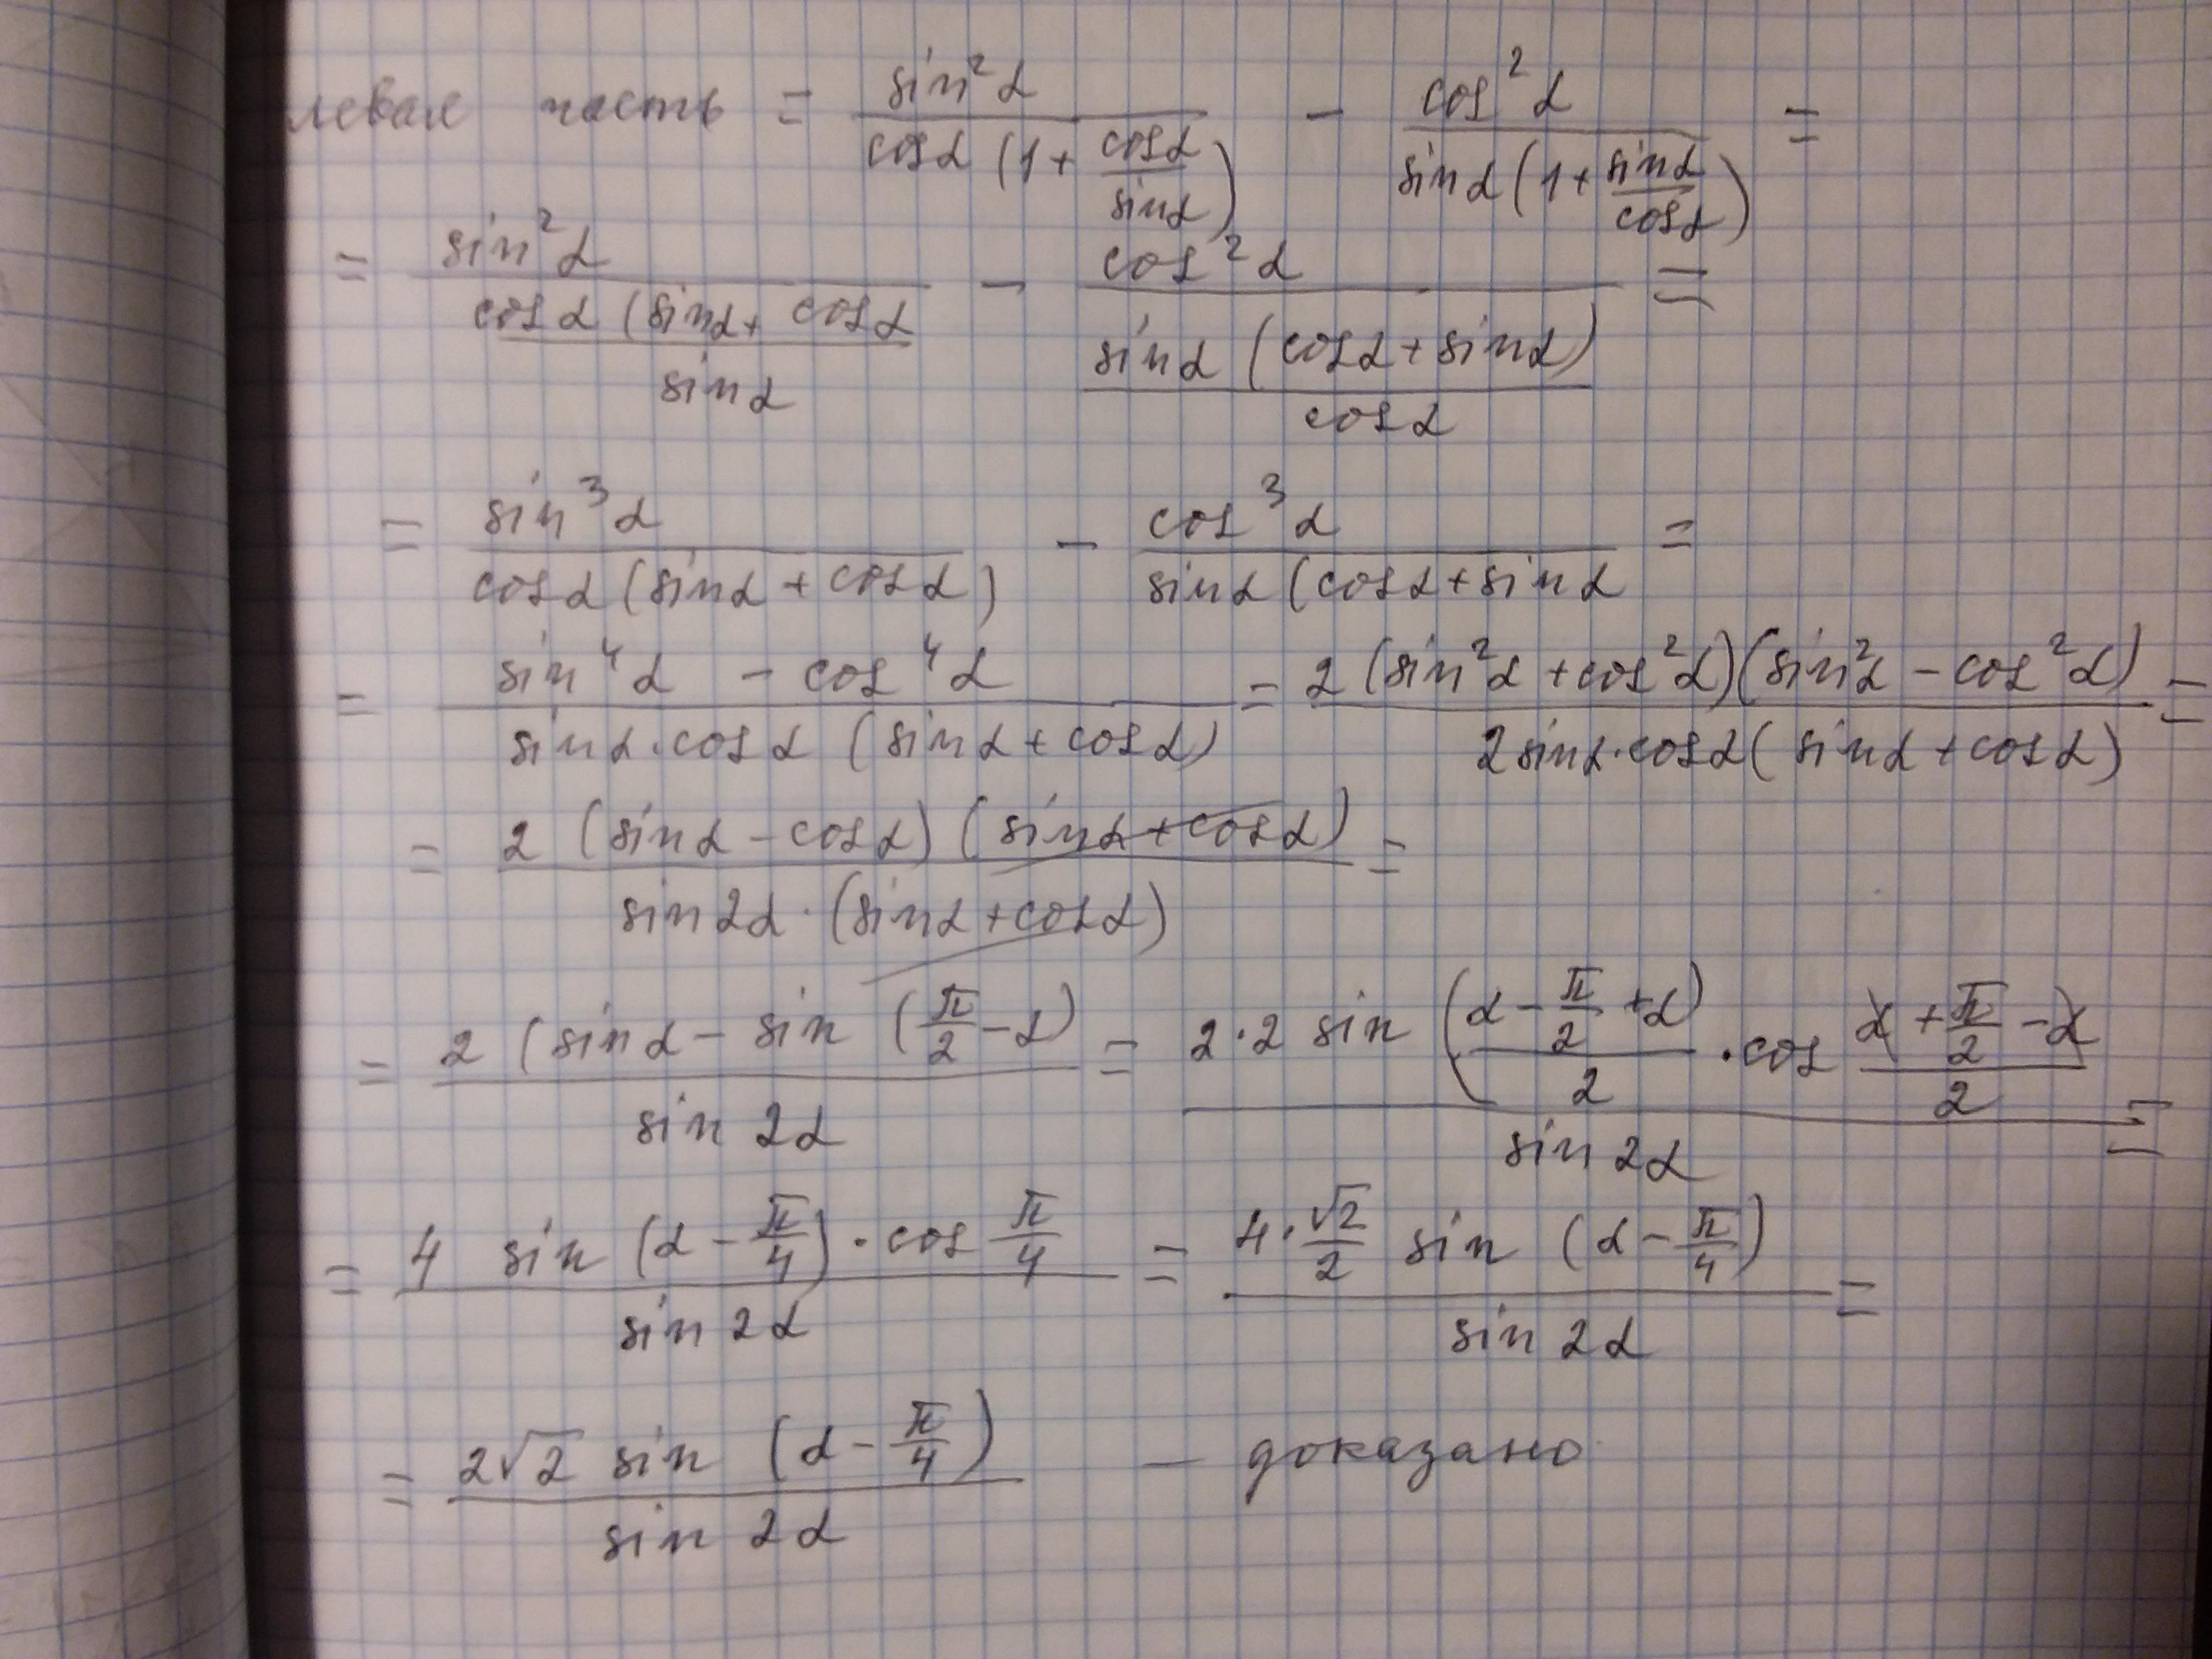 левая часть = sin²α / cosα (1 + cosα / sinα) − cos²α / sinα (1 + sinα / cosα) =
= sin²α / (cosα (sinα + cosα / sinα) − cos²α / (sinα (cosα + sinα) / cosα) =
= sin³α / cosα (sinα + cosα) − cos³α / sinα (cosα + sinα =
= sin⁴α − cos⁴α / sinα · cosα (sinα + cosα) = 2 (sin²α + cos²α)(sin²α − cos²α) / 2 sinα · cosα (sinα + cosα) =
= 2 (sinα − cosα) (sinα + cosα) / sin 2α · (sinα + cosα) =
= 2 (sinα − sin (π/2 − α) / sin 2α = 2·2 sin (α − π/2 + α) / 2 · cos α + π/2 − α / 2 / sin 2α =
= 4 sin (α − π/4) · cos π/4 / sin 2α = 4 · √2/2 sin (α − π/4) / sin 2α =
= 2√2 sin (α − π/4) / sin 2α — доказано